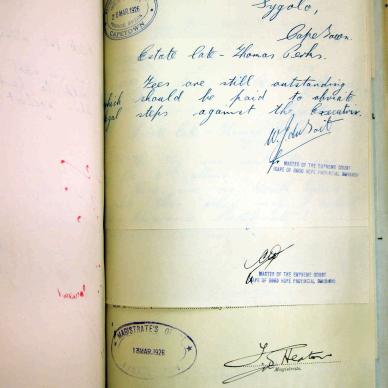 26 MAR. 1926
CAPETOWN
Cape Town.
Estate late - Thomas
Fees are still outstanding
which should be paid to obviate
legal steps against the Executor.
MASTER OF THE SUPREME COURT
CAPE OF GOOD HOPE PROVINCIAL DIVISION
MASTER OF THE SUPREME COURT
CAPE OF GOOD HOPE PROVINCIAL DIVISION
MAGISTRATE'S
13 MAR. 1926
Magistrate.